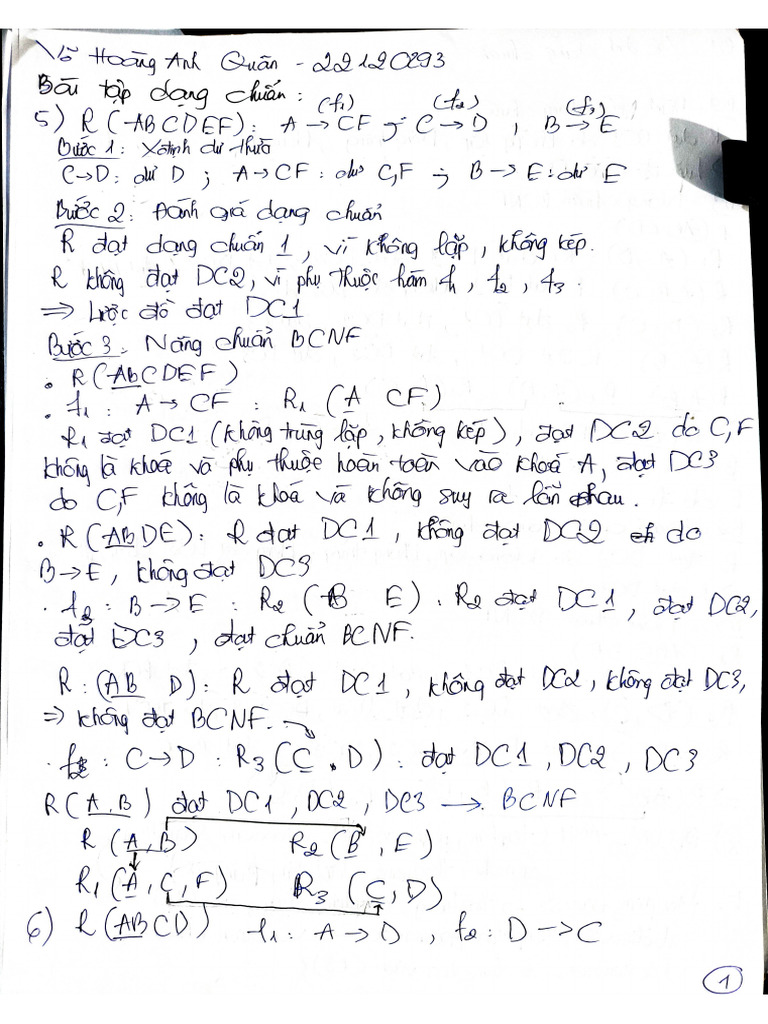 Võ Hoàng Anh Quân - 22120293
Bài tập dạng chuẩn:
(f1) (f2) (f3)
5) R(ABCDEF): A → CF ; C → D , B → E
Bước 1: Xđịnh dư thừa
C→D: dư D ; A→CF: dư C,F ; B → E: dư E
Bước 2: Đánh giá dạng chuẩn
R đạt dạng chuẩn 1, vì không lặp, không kép.
R không đạt DC2, vì phụ thuộc hàm f1, f2, f3.
⇒ Lược đồ đạt DC1
Bước 3: Nâng chuẩn BCNF
• R(ABCDEF)
• f1: A → CF : R1 (A CF)
R1 đạt DC1 (không trùng lặp, không kép), đạt DC2 do C,F
không là khoá và phụ thuộc hoàn toàn vào khoá A, đạt DC3
do C,F không là khoá và không suy ra lẫn nhau.
• R(ABDE): R đạt DC1, không đạt DC2 do
B→E, không đạt DC3
• f2: B → E : R2 (B E). R2 đạt DC1, đạt DC2,
đạt DC3, đạt chuẩn BCNF.
R: (AB D): R đạt DC1, không đạt DC2, không đạt DC3,
⇒ không đạt BCNF.
• f2: C→D : R3 (C, D): đạt DC1, DC2, DC3
R(A,B) đạt DC1, DC2, DC3 → BCNF
R (A,B) R2 (B, E)
R1 (A, C, F) R3 (C, D)
6) R(ABCD) f1: A → D , f2: D → C
1